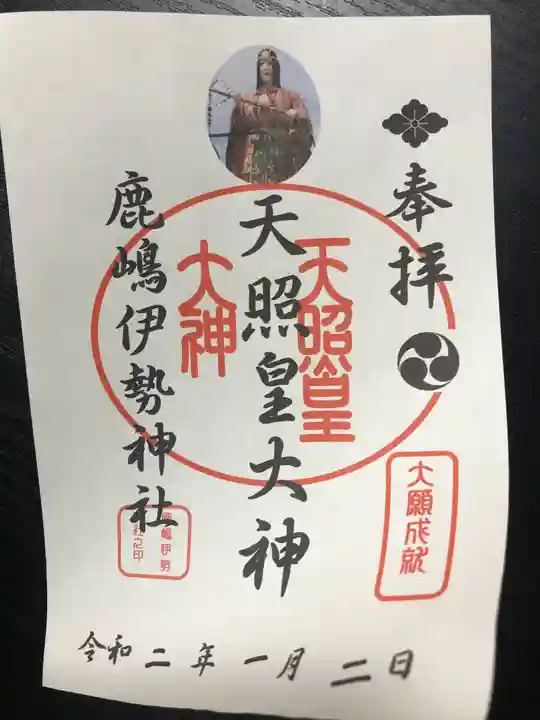 奉拝
大願成就
天照皇大神
天照皇
大神
鹿嶋伊勢神社
鹿嶋伊勢
神社之印
令和二年一月二日